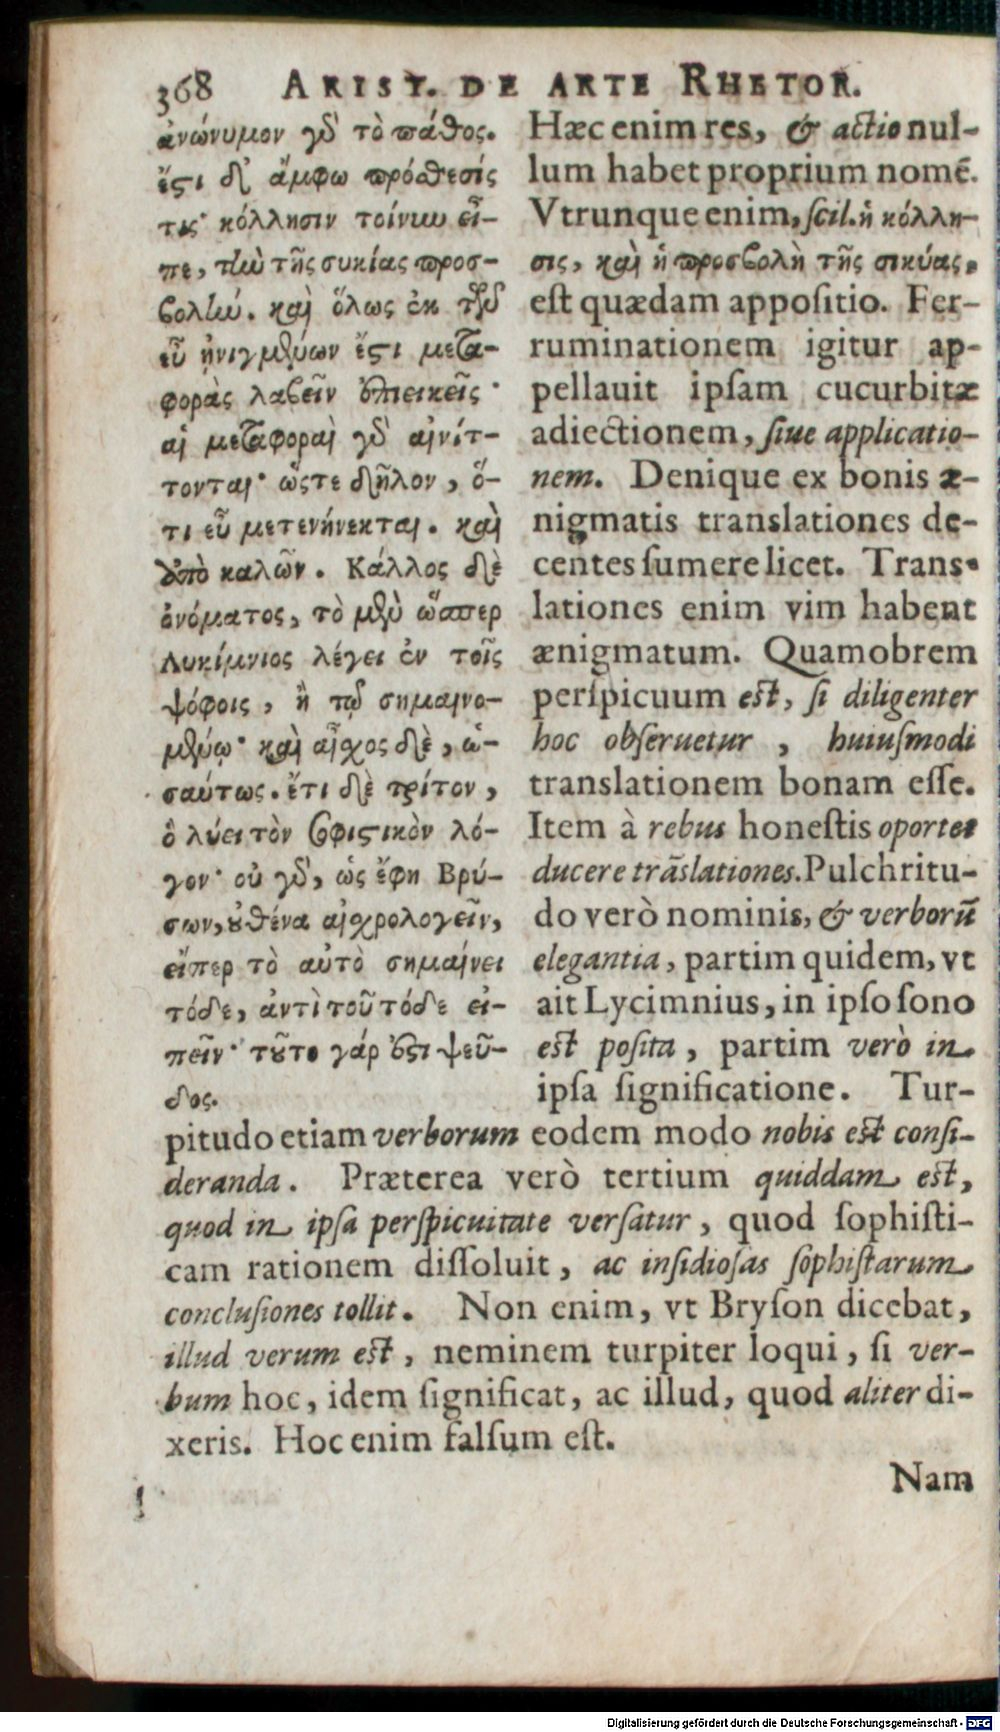 368 ARIST. DE ARTE RHETOR.
ἀνώνυμον γὸ τὸ πάθος.
ἔςι δ' ἄμφω πρόσθεσίς
τις· κόλλησιν τοίνυν εἶ-
πε, τὴν τῆς συκίας προσ-
βολήν. καὶ ὅλως ἐκ τῶν
εὖ ᾐνιγμένων ἔςι μετα-
φορὰς λαβεῖν ἐπιεικεῖς·
αἱ μεταφοραὶ γὸ αἰνίτ-
τονται· ὥςτε δῆλον, ὅ-
τι εὖ μετενήνεκται. καὶ
ἀπὸ καλῶν. Κάλλος δὲ
ὀνόματος, τὸ μὲν ὥσπερ
Λυκίμνιος λέγει ἐν τοῖς
ψόφοις, ἢ τῷ σημαινο-
μένῳ· καὶ αἶχος δὲ, ὡ-
σαύτως. ἔτι δὲ τρίτον,
ὃ λύει τὸν σοφιςικὸν λό-
γον· οὐ γὸ, ὡς ἔφη Βρύ-
σων, ȣθένα αἰχρολογεῖν,
εἴπερ τὸ αὐτὸ σημαίνει
τόδε, ἀντὶ τοῦ τόδε εἰ-
πεῖν· τȣ͂το γάρ ἐςι ψεῦ-
δος.
Hæc enim res, & actio nul-
lum habet proprium nomẽ.
Vtrunque enim, ſcil. ἡ κόλλη-
σις, καὶ ἡ προσβολὴ τῆς σικύας,
eſt quædam appoſitio. Fer-
ruminationem igitur ap-
pellauit ipſam cucurbitæ
adiectionem, ſiue applicatio-
nem. Denique ex bonis æ-
nigmatis translationes de-
centes ſumere licet. Trans-
lationes enim vim habent
ænigmatum. Quamobrem
perſpicuum eſt, ſi diligenter
hoc obſeruetur, huiuſmodi
translationem bonam eſſe.
Item à rebus honeſtis oportet
ducere trãslationes. Pulchritu-
do verò nominis, & verborũ
elegantia, partim quidem, vt
ait Lycimnius, in ipſo ſono
eſt poſita, partim verò in
ipſa ſignificatione. Tur-
pitudo etiam verborum eodem modo nobis eſt conſi-
deranda. Præterea verò tertium quiddam eſt,
quod in ipſa perſpicuitate verſatur, quod ſophiſti-
cam rationem diſſoluit, ac inſidioſas ſophiſtarum
concluſiones tollit. Non enim, vt Bryſon dicebat,
illud verum eſt, neminem turpiter loqui, ſi ver-
bum hoc, idem ſignificat, ac illud, quod aliter di-
xeris. Hoc enim falſum eſt.
Nam
Digitalisierung gefördert durch die Deutsche Forschungsgemeinschaft - DFG